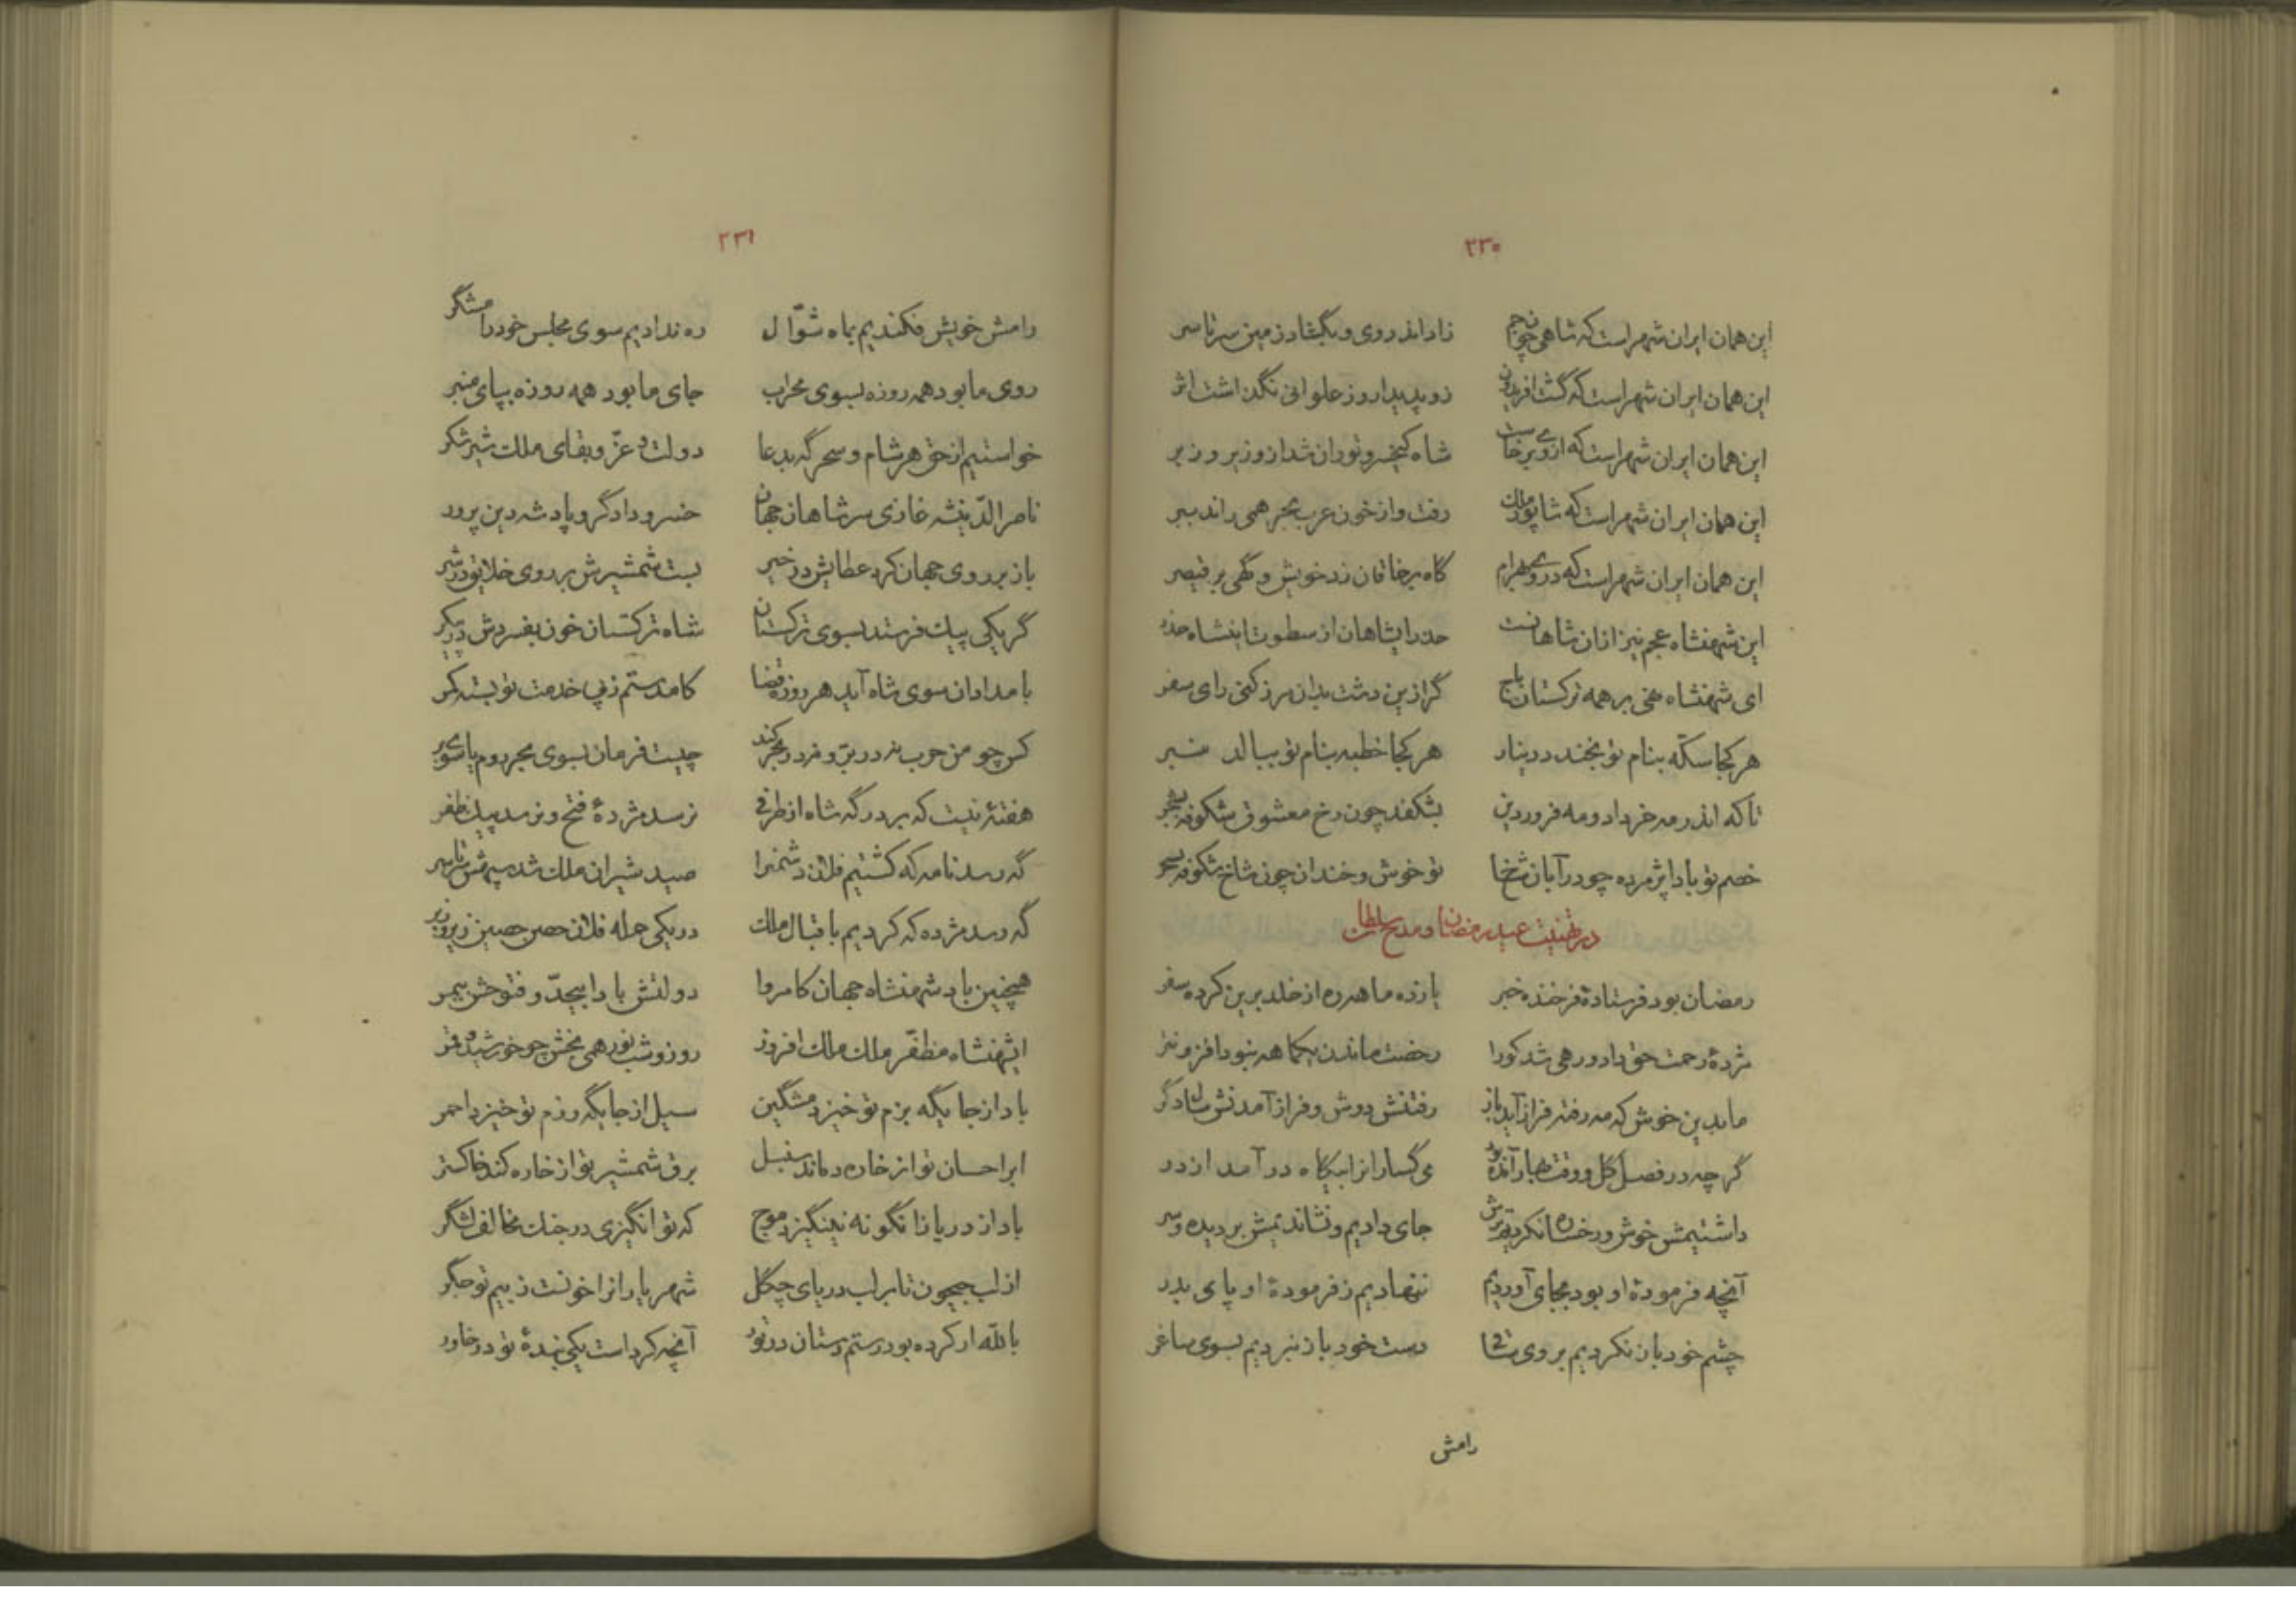 ۲۳۰
این همان ایران شهر است که شاهی چو جم زاد اندر وی و بگشاد زمین سرتاسر
این همان ایران شهر است که گشت افریدون زو پدیدار وز علوانی نگذاشت اثر
این همان ایران شهر است که از وی برخاست شاه کیخسرو و توران شد ازو زیر و زبر
این همان ایران شهر است که شاپور ملک رفت و از خون عرب بحر همی راند ببر
این همان ایران شهر است که در وی بهرام گاه بر خاقان زد خویش و گهی بر قیصر
این شهنشاه عجم نیز ازان شاهانست حذر ایشاهان از سطوت اینشاه حذر
ای شهنشاه نهی بر همه ترکستان باج گر ازین دشت بدان مرز کنی رای سفر
هر کجا سکّه بنام تو بخندد دینار هر کجا خطبه بنام تو ببالد منبر
تا که اندر مه خرداد و مه فروردین بشکفد چون رخ معشوق شکوفه بشجر
خصم تو بادا پژمرده چو در آبان شخ تو خوش و خندان چون شاخ شکوفه بسحر
در تهنیت عید رمضان و مدح سلطان
رمضان بود فرستادهٔ فرخنده خبر یازده ماهه ره از خلد برین کرده سفر
مژدهٔ رحمت حق داد و رهی شد کورا رخصت ماندن یکماهه نبود افزونتر
ما بدین خوش که مه رفته فراز آید باز رفتنش دوش و فراز آمدنش سال دگر
گرچه در فصل گل و وقت بهار آمده بود می گسارانرا بیگاه درآمد از در
داشتیمش خوش و رخساره نکردیم ترش جای دادیم و نشاندیمش بر دیده و سر
آنچه فرمودهٔ او بود بجای آوردیم ننهادیم ز فرمودهٔ او پای بدر
چشم خود باز نکردیم بروی ساقی دست خود باز نبردیم بسوی ساغر
رامش
۲۳۱
رامش خویش فکندیم بماه شوّال ره ندادیم سوی مجلس خود رامشگر
روی ما بود همه روزه بسوی محراب جای ما بود همه روزه بپای منبر
خواستیم از حق هر شام و سحرگه بدعا دولت و عزّ و بقای ملک شیر شکر
ناصر الدّینشه غازی سر شاهان جهان خسرو دادگر و پادشه دین پرور
باز بر روی جهان کرد عطایش در خیر بست شمشیرش بر روی خلایق در شر
گر یکی پیک فرستد بسوی ترکستان شاه ترکستان خون بفسردش در پیکر
بامدادان سوی شاه آید هر روز قضا کامدستم ز پی خدمت تو بسته کمر
کس چو من خوب نبرد در برّ و نبرد در بحر کند چیست فرمان بسوی بحر روم یا سوی بر
هفتهٔ نیست که بر درگه شاه از طرفی نرسد مژدهٔ فتح و نرسد پیک ظفر
گه رسد نامه که کشتیم فلان دشمنرا صید شیران ملک شد سپهش سرتاسر
گه رسد مژده که کردیم باقبال ملک در یکی حمله فلان حصن حصین زیر و زبر
همچنین باد شهنشاه جهان کامروا دولتش بادا بیحدّ و فتوحش بیمر
ایشهنشاه مظفّر ملک ملک افروز روز و شب نور همی بخش چو خورشید و قمر
باد از جایگه بزم تو خیزد مشگین سیل از جایگه رزم تو خیزد احمر
ابر احسان تو از خاره دماند سنبل برق شمشیر تو از خاره کند خاکستر
باد از دریا زانگونه نینگیزد موج که تو انگیزی در جنگ مخالف لشگر
از لب جیحون تا بر لب دریای چگل شهریارانرا خونست ز بیم تو جگر
بالله ار کرده بود رستم دستان در تور آنچه کرد است یکی بندهٔ تو در خاور